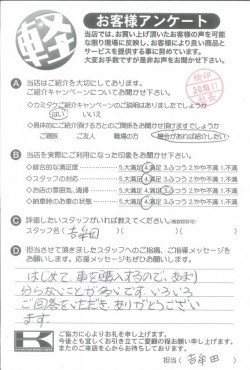 軽
お客様アンケート
当店では、お買い上げ頂いたお客様の声を可能
な限り現場に反映し、お客様により良い商品と
サービスを提供する事に努めています。
大変お手数ですが是非お声をお聞かせ下さい。
A 当店はご紹介を大切にしております。
ご紹介キャンペーンについてお聞かせ下さい。
◇カミタケご紹介キャンペーンのご説明はありましたでしょうか
はい いいえ
◇具体的にご紹介頂ける方とのご関係をお聞かせ頂けますでしょうか
ご親族 ご友人 職場の方 機会があれば紹介したい
B 当店を実際にご利用になった印象をお聞かせ下さい。
◇総合的な満足度 5.大満足 4.満足 3.ふつう 2.やや不満 1.不満
◇スタッフの対応 5.大満足 4.満足 3.ふつう 2.やや不満 1.不満
◇お店の雰囲気、清掃 5.大満足 4.満足 3.ふつう 2.やや不満 1.不満
◇納車時のお車の状態 5.大満足 4.満足 3.ふつう 2.やや不満 1.不満
C 評価したいスタッフがいれば教えてください。
スタッフ名( 吉牟田 )( )( )
D 担当させて頂きましたスタッフへのご指摘、ご指導メッセージを
お願いします。応援メッセージもぜひお願いします。
はじめて、車を購入するので、あまり
分らないことが多いです、いろいろ
ご回答をいただき、ありがとうござい
ます。
K
ご協力に心よりお礼を申し上げます。
今後とも宜しくお引き立てご愛顧の程お願い申し上げます。
またのご来店を心からお待ちしております。
担当( 吉牟田 )